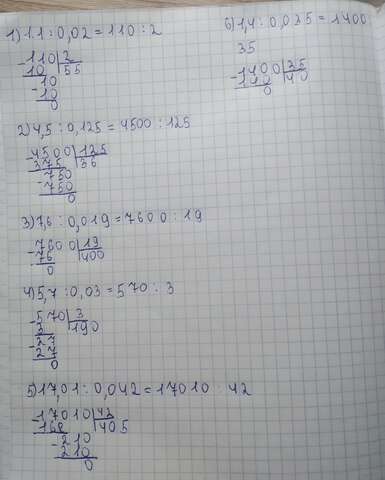 1) 1.1 : 0,02 = 110 : 2
-110|2
10|55
-10
10
0
2) 4,5 : 0,125 = 4500 : 125
-4500|125
375|36
-750
750
0
3) 7,6 : 0,019 = 7600 : 19
-7600|19
76|400
0
4) 5,7 : 0,03 = 570 : 3
-570|3
3|190
-27
27
0
5) 17,01 : 0,042 = 17010 : 42
-17010|42
168|405
-210
210
0
6) 1,4 : 0,035 = 1400
35
-1400|35
140|40
0